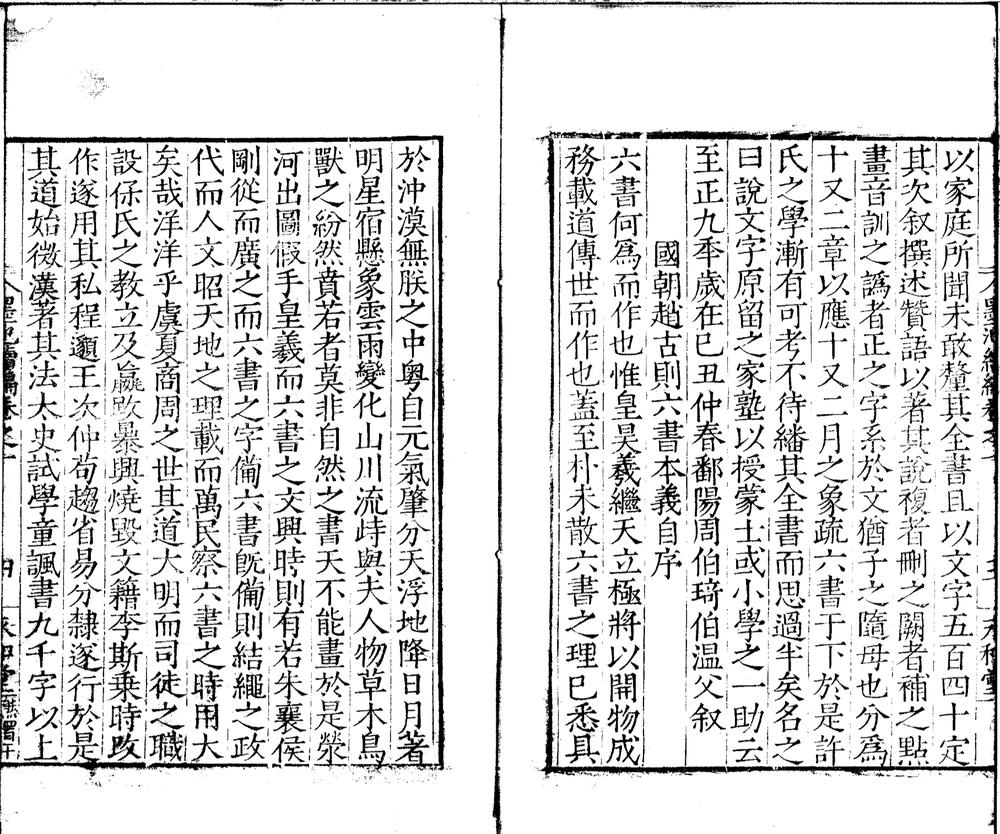 以家庭所聞未敢釐其全書且以文字五百四十定
其次叙撰述贊語以著其說複者刪之闕者補之點
畫音訓之譌者正之字系於文猶子之隨母也分為
十又二章以應十又二月之象疏六書于下於是許
氏之學漸有可考不待繙其全書而思過半矣名之
曰說文字原留之家塾以授蒙士或小學之一助云
至正九季歲在巳丑仲春鄱陽周伯琦伯温父叙
國朝趙古則六書本義自序
六書何為而作也惟皇昊羲繼天立極將以開物成
務載道傳世而作也蓋至朴未散六書之理已悉具
於沖漠無朕之中粵自元氣肇分天浮地降日月著
明星宿懸象雲雨變化山川流峙與夫人物草木鳥
獸之紛然賁若者莫非自然之書天不能畫於是滎
河出圖假手皇羲而六書之文興時則有若朱襄侯
剛從而廣之而六書之字備六書旣備則結繩之政
代而人文昭天地之理載而萬民察六書之時用大
矣哉洋洋乎虞夏商周之世其道大明而司徒之職
設保氏之教立及嬴政暴興燒毀文籍李斯乗時改
作遂用其私程邈王次仲苟趨省易分隸遂行於是
其道始微漢著其法太史試學童諷書九千字以上